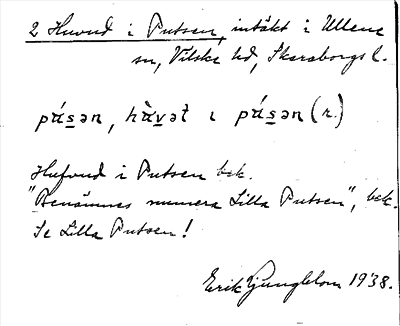 2 Huvud i Putsen, intäkt i Ullene
sn, Vilske hd, Skaraborgs l.
pásən, hàvət ɩ pásən (r.)
Hufvud i Putsen bek.
"Benämnes numera Lilla Putsen", bek.
Se Lilla Putsen!
Erik Ljungblom 1938.